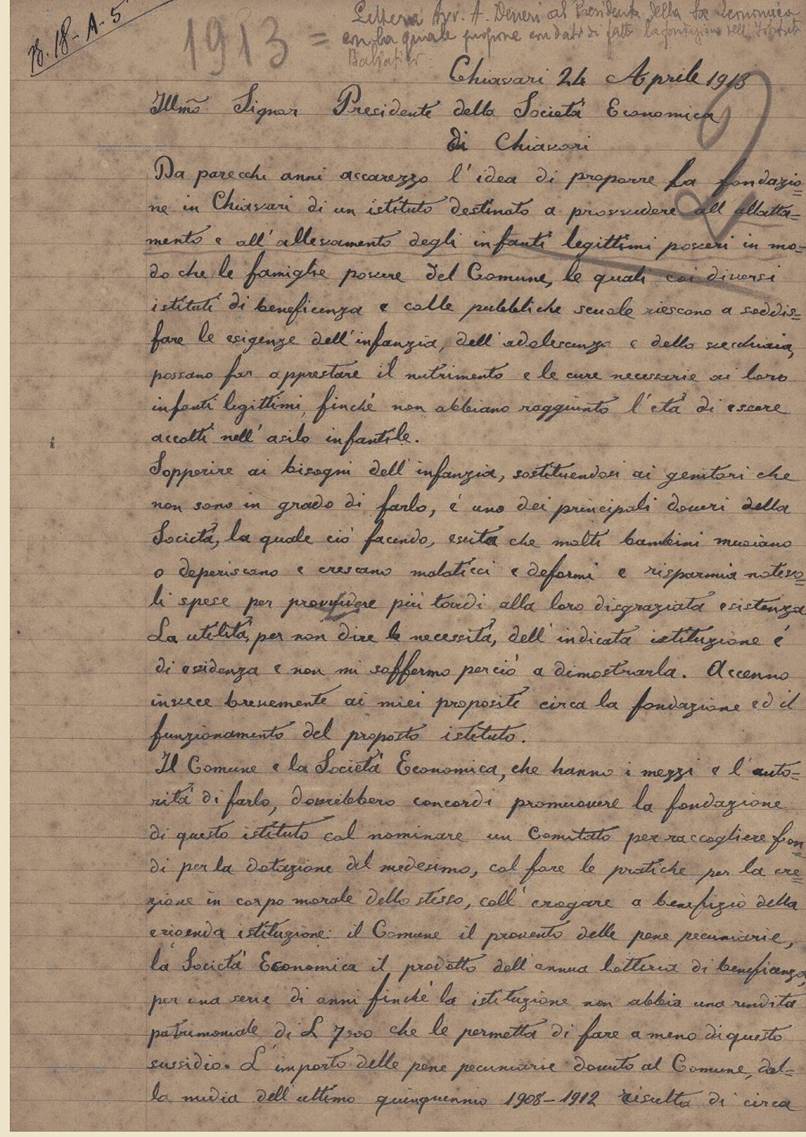 B. 18-A-5
1913 = Lettera Avv. A. Deneri al Presidente della Soc. Economica
con la quale propone con dati di fatto la fondazione dell'Istituto
Chiavari 24 Aprile 1913
Illmo Signor Presidente della Società Economica
di Chiavari
2
Da parecchi anni accarezzo l'idea di proporre la fondazio=
ne in Chiavari di un istituto destinato a provvedere all'allatta=
mento e all'allevamento degli infanti legittimi poveri in mo=
do che le famiglie povere del Comune, le quali coi diversi
istituti di beneficenza e colle pubbliche scuole riescono a soddis=
fare le esigenze dell'infanzia, dell'adolescenza e della vecchiaia,
possano far apprestare il nutrimento e le cure necessarie ai loro
infanti legittimi, finchè non abbiano raggiunto l'età di essere
accolti nell'asilo infantile.
Sopperire ai bisogni dell'infanzia, sostituendosi ai genitori che
non sono in grado di farlo, è uno dei principali doveri della
Società, la quale ciò facendo, evita che molti bambini muoiano
o deperiscano e crescano malaticci e deformi e risparmia notevo=
li spese per provvedere più tardi alla loro disgraziata esistenza
La utilità, per non dire la necessità, dell'indicata istituzione è
di evidenza e non mi soffermo perciò a dimostrarla. Accenno
invece brevemente ai miei propositi circa la fondazione ed il
funzionamento del proposto istituto.
Il Comune e la Società Economica, che hanno i mezzi e l'auto=
rità di farlo, dovrebbero concordi promuovere la fondazione
di questo istituto col nominare un Comitato per raccogliere fon=
di per la dotazione del medesimo, col fare le pratiche per la ere=
zione in corpo morale dello stesso, coll'erogare a benefizio della
erigenda istituzione: il Comune il provento delle pene pecuniarie,
la Società Economica il prodotto dell'annua lotteria di beneficenza,
per una serie di anni finchè la istituzione non abbia una rendita
patrimoniale di L 7500 che le permetta di fare a meno di questo
sussidio. L'importo delle pene pecuniarie dovuto al Comune, dal=
la media dell'ultimo quinquennio 1908-1912 risulta di circa